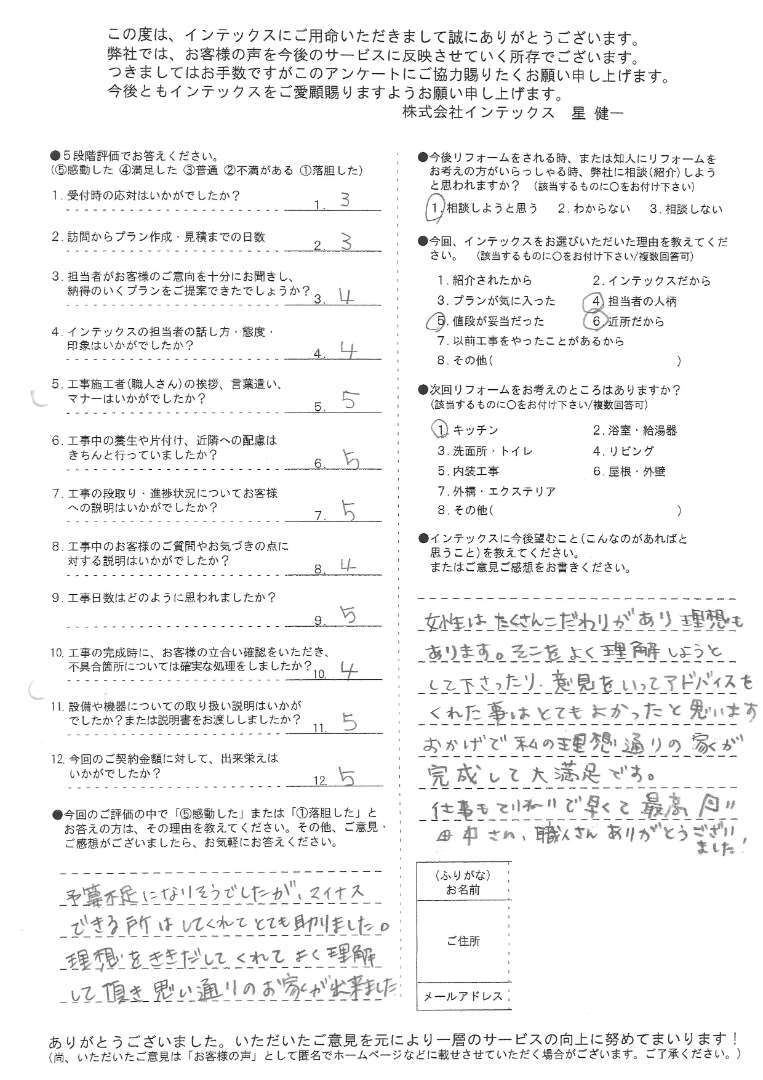 この度は、インテックスにご用命いただきまして誠にありがとうございます。
弊社では、お客様の声を今後のサービスに反映させていく所存でございます。
つきましてはお手数ですがこのアンケートにご協力賜りたくお願い申し上げます。
今後ともインテックスをご愛顧賜りますようお願い申し上げます。
株式会社インテックス 星 健一
●5段階評価でお答えください。
(⑤感動した ④満足した ③普通 ②不満がある ①落胆した)
1. 受付時の応対はいかがでしたか?
1. 3
2. 訪問からプラン作成・見積までの日数
2. 3
3. 担当者がお客様のご意向を十分にお聞きし、
納得のいくプランをご提案できたでしょうか?
3. 4
4. インテックスの担当者の話し方・態度・
印象はいかがでしたか?
4. 4
5. 工事施工者(職人さん)の挨拶、言葉遣い、
マナーはいかがでしたか?
5. 5
6. 工事中の養生や片付け、近隣への配慮は
きちんと行っていましたか?
6. 5
7. 工事の段取り・進捗状況についてお客様
への説明はいかがでしたか?
7. 5
8. 工事中のお客様のご質問やお気づきの点に
対する説明はいかがでしたか?
8. 4
9. 工事日数はどのように思われましたか?
9. 5
10. 工事の完成時に、お客様の立合い確認をいただき、
不具合箇所については確実な処理をしましたか?
10. 4
11. 設備や機器についての取り扱い説明はいかが
でしたか?または説明書をお渡ししましたか?
11. 5
12. 今回のご契約金額に対して、出来栄えは
いかがでしたか?
12. 5
●今回のご評価の中で「⑤感動した」または「①落胆した」と
お答えの方は、その理由を教えてください。その他、ご意見・
ご感想がございましたら、お気軽にお答えください。
予算不足になりそうでしたが、マイナス
できる所はしてくれてとても助りました。
理想をききだしてくれてよく理解
して頂き思い通りのお家が出来ました
●今後リフォームをされる時、または知人にリフォームを
お考えの方がいらっしゃる時、弊社に相談(紹介)しよう
と思われますか? (該当するものに○をお付け下さい)
1. 相談しようと思う 2. わからない 3. 相談しない
●今回、インテックスをお選びいただいた理由を教えてくだ
さい。 (該当するものに○をお付け下さい/複数回答可)
1. 紹介されたから 2. インテックスだから
3. プランが気に入った 4. 担当者の人柄
5. 値段が妥当だった 6. 近所だから
7. 以前工事をやったことがあるから
8. その他( )
●次回リフォームをお考えのところはありますか?
(該当するものに○をお付け下さい/複数回答可)
1. キッチン 2. 浴室・給湯器
3. 洗面所・トイレ 4. リビング
5. 内装工事 6. 屋根・外壁
7. 外構・エクステリア
8. その他( )
●インテックスに今後望むこと(こんなのがあればと
思うこと)を教えてください。
またはご意見ご感想をお書きください。
女性はたくさんこだわりがあり理想も
あります。そこをよく理解しようと
して下さったり、意見をいってアドバイスを
くれた事はとてもよかったと思います
おかげで私の理想通りの家が
完成して大満足です。
仕事もていねいで早くて最高
田中さん、職人さんありがとうござい
ました!
(ふりがな)
お名前
ご住所
メールアドレス
ありがとうございました。いただいたご意見を元により一層のサービスの向上に努めてまいります!
(尚、いただいたご意見は「お客様の声」として匿名でホームページなどに載せさせていただく場合がございます。ご了承ください。)